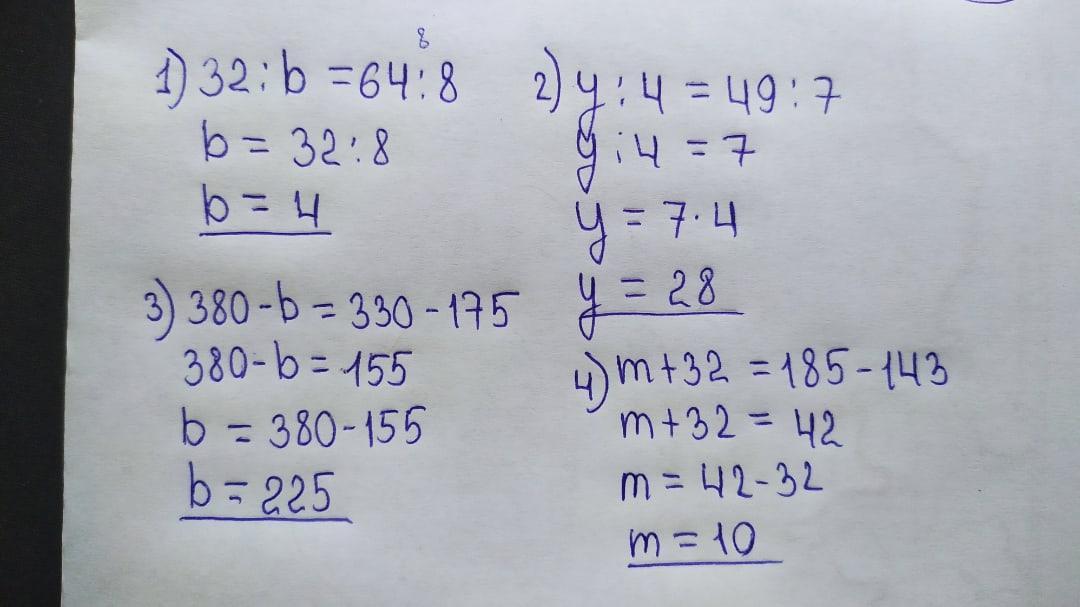 8
1) 32 : b = 64 : 8
b = 32 : 8
b = 4
2) y : 4 = 49 : 7
y : 4 = 7
y = 7 · 4
y = 28
3) 380 - b = 330 - 175
380 - b = 155
b = 380 - 155
b = 225
4) m + 32 = 185 - 143
m + 32 = 42
m = 42 - 32
m = 10